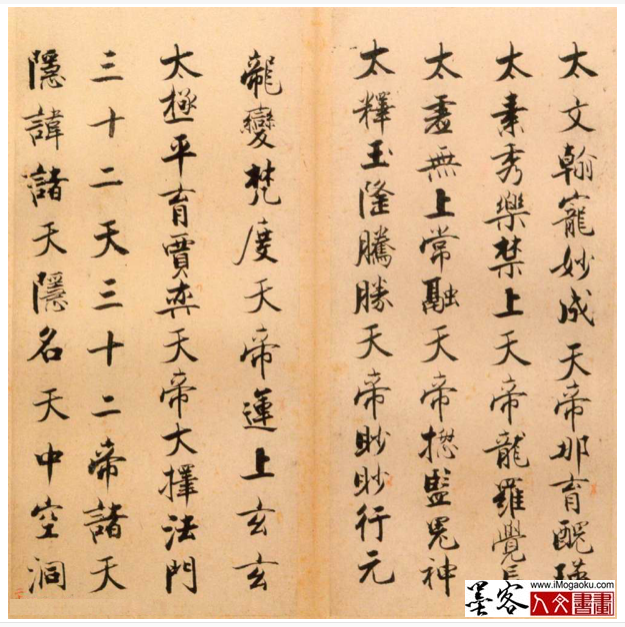 太文翰寵妙成天帝那育醜瑛
太素秀樂禁上天帝龍羅覺長
太虛無上常融天帝摠監鬼神
太釋玉隆騰勝天帝眇眇行元
龍變梵度天帝運上玄玄
太極平育賈奕天帝大擇法門
三十二天三十二帝諸天
隱諱諸天隱名天中空洞
墨客
www.iMogaoku.com
人文書畫